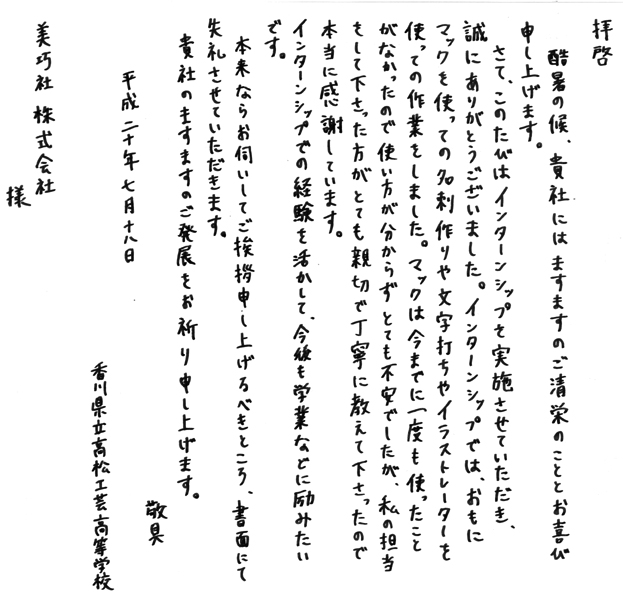 拝啓
酷暑の候、貴社にはますますのご清栄のこととお喜び
申し上げます。
さて、このたびはインターンシップを実施させていただき、
誠にありがとうございました。インターンシップでは、おもに
マックを使っての名刺作りや文字打ちやイラストレーターを
使っての作業をしました。マックは今までに一度も使ったこと
がなかったので使い方が分からずとても不安でしたが、私の担当
をして下さった方がとても親切で丁寧に教えて下さったので
本当に感謝しています。
インターンシップでの経験を活かして、今後も学業などに励みたい
です。
本来ならお伺いしてご挨拶申し上げるべきところ、書面にて
失礼させていただきます。
貴社のますますのご発展をお祈り申し上げます。
敬具
平成二十年七月十八日
香川県立高松工芸高等学校
美巧社株式会社
様